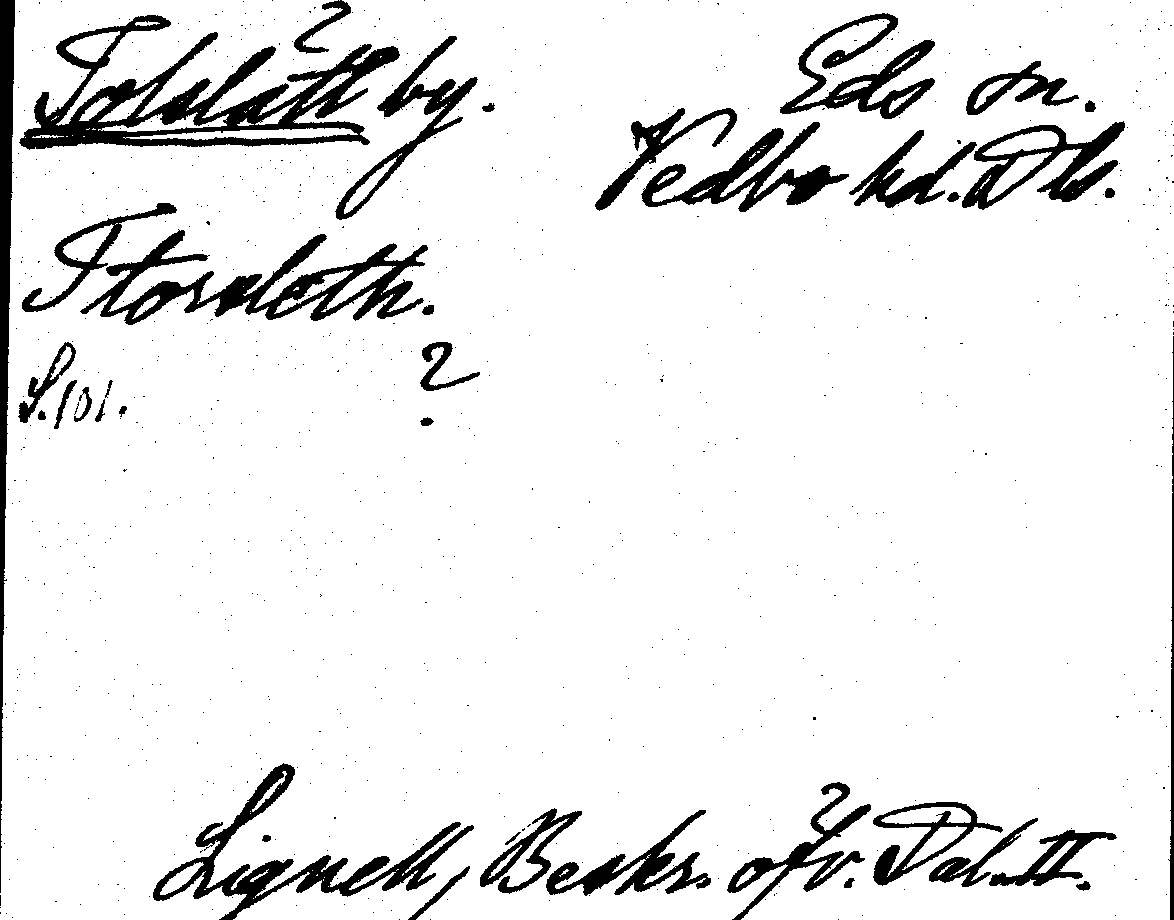 Tolslätt by. Eds sn.
Vedbo hd. Dls.
Storsleth.
S.101. ?
Lignell, Beskr. öfv. Dal. II.